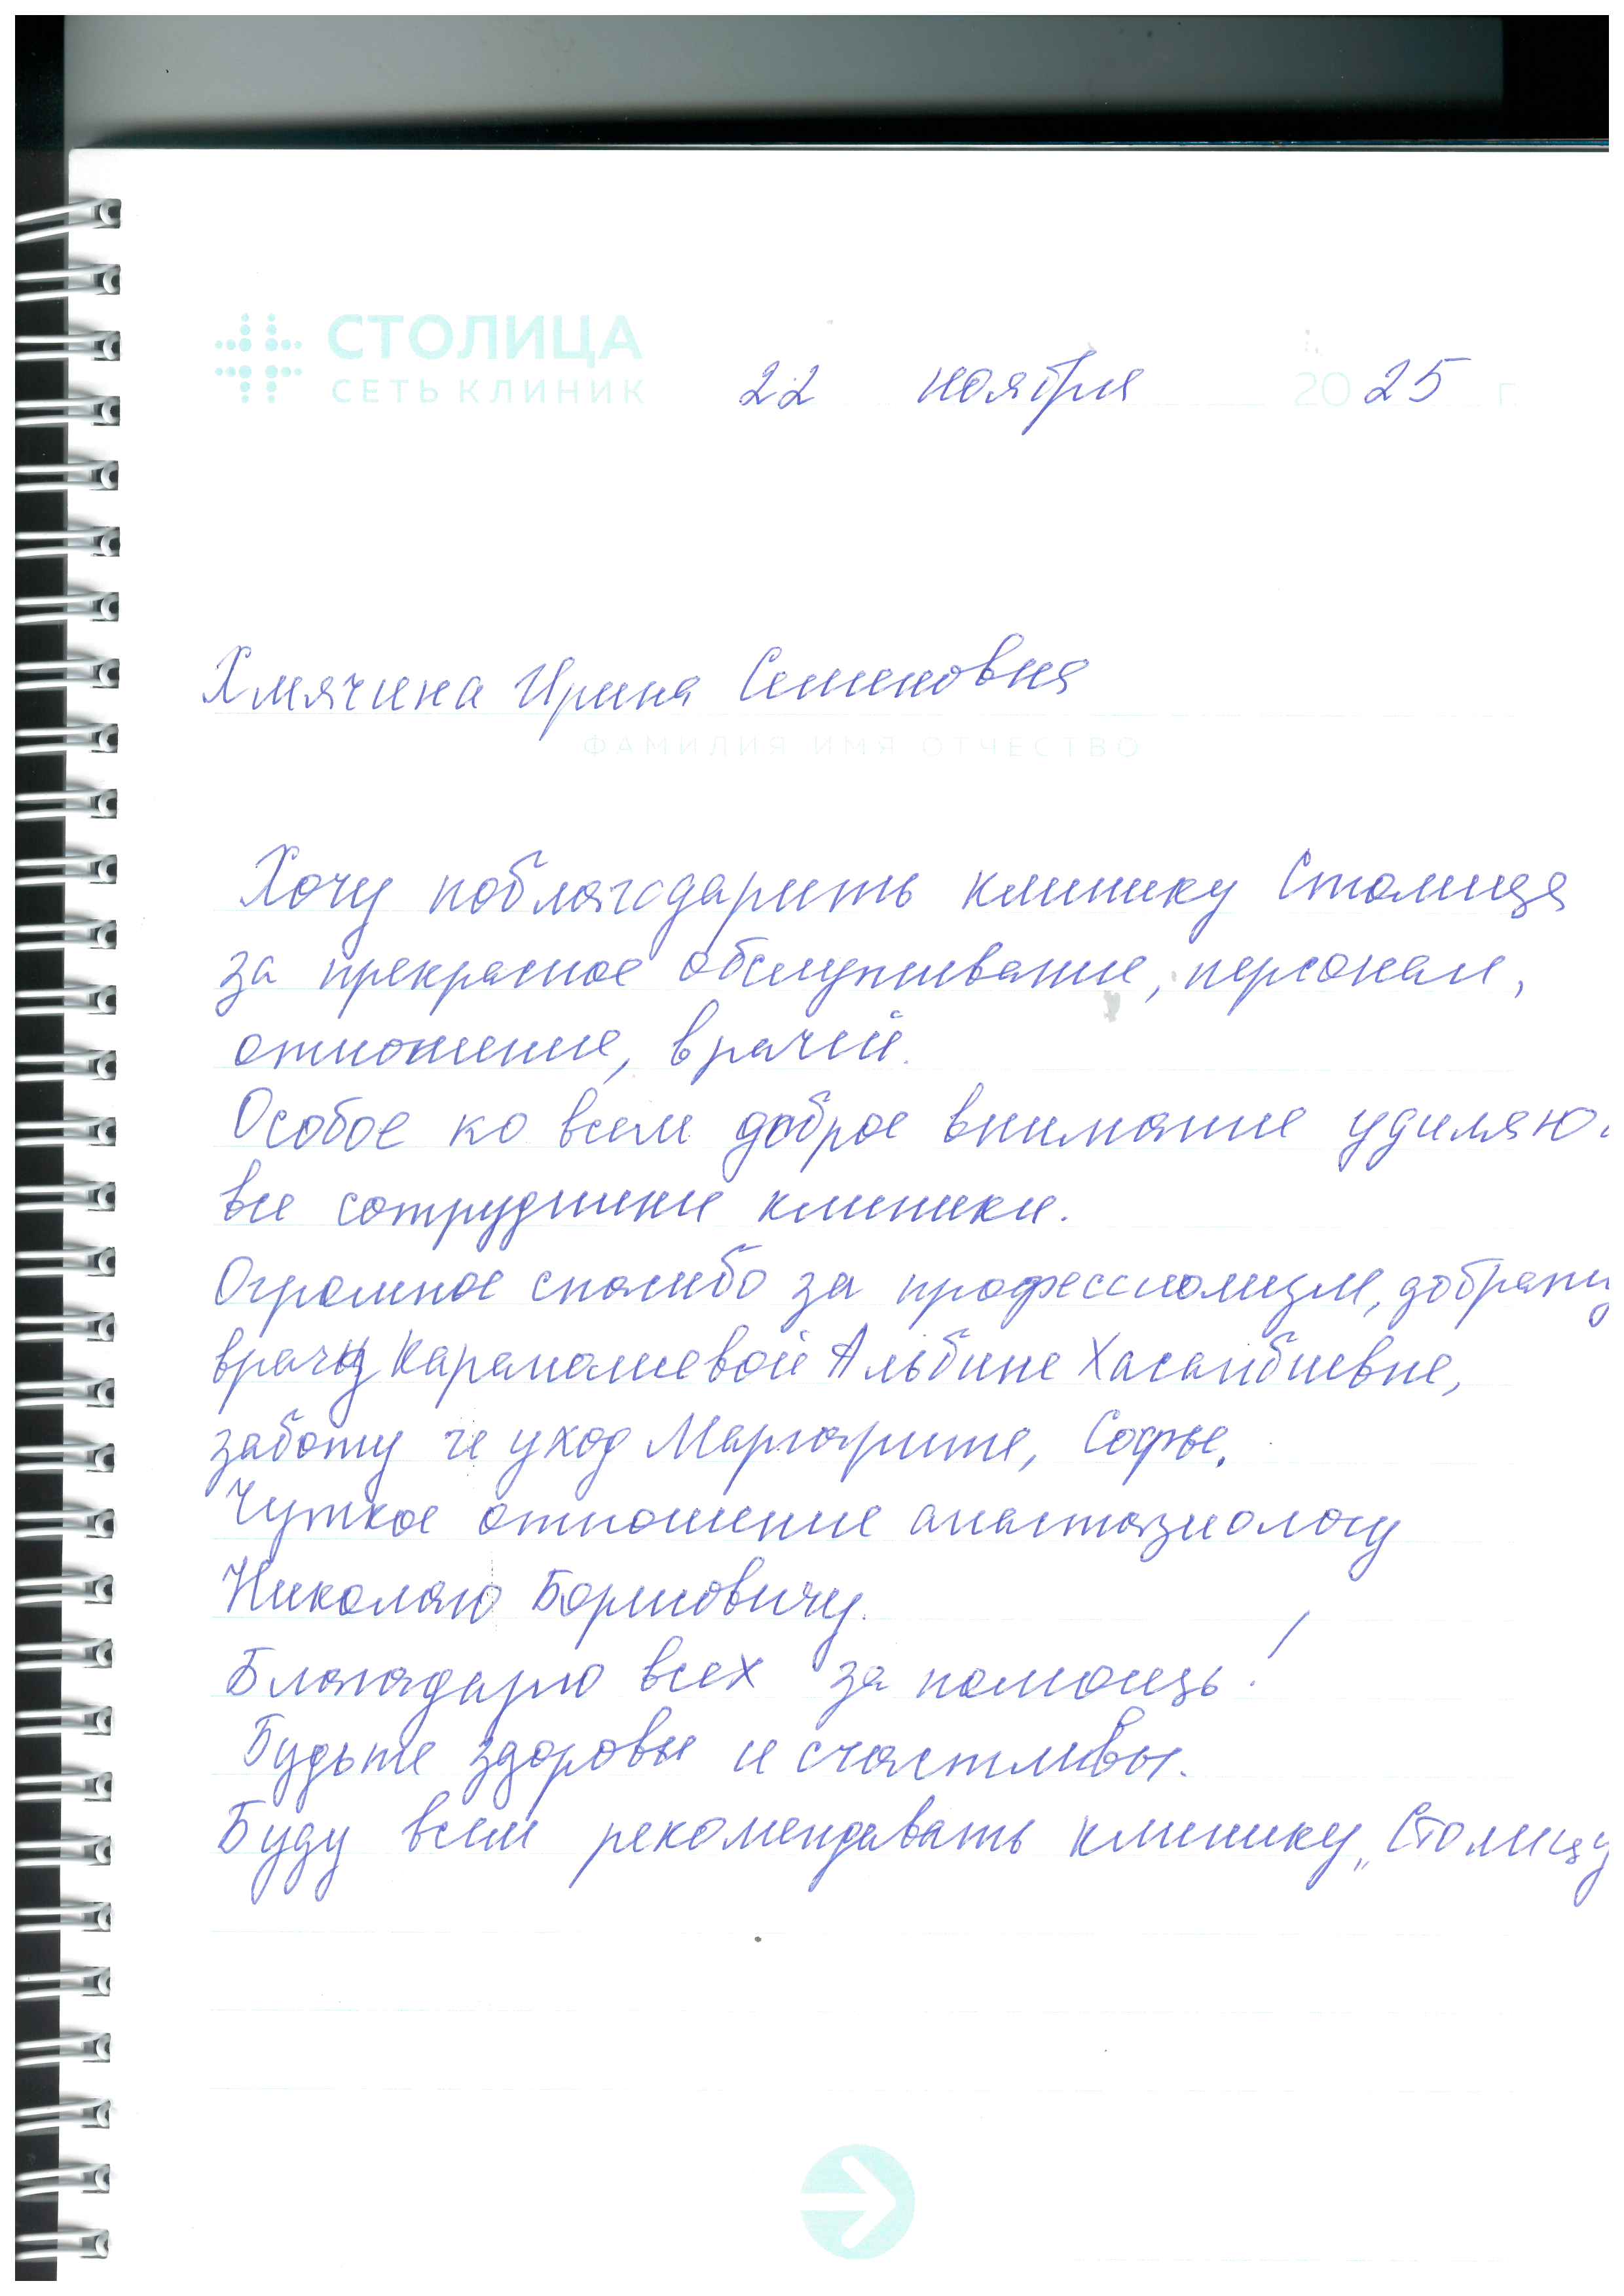 СТОЛИЦА
СЕТЬ КЛИНИК
22 ноября 2025 г.
Хмячина Ирина Семеновна
ФАМИЛИЯ ИМЯ ОТЧЕСТВО
Хочу поблагодарить клинику Столица
за прекрасное обслуживание, персонал,
отношение, врачей.
Особое ко всем доброе внимание уделяю
все сотрудники клиники.
Огромное спасибо за профессионализм,
врачу Альбине Хасанбиевне,
заботу и уход Маргарите, Софье.
Чуткое отношение анастазиологу
Николаю Борисовичу.
Благодарю всех за помощь!
Будьте здоровы и счастливы.
Буду всем рекомендовать клинику „Столицу